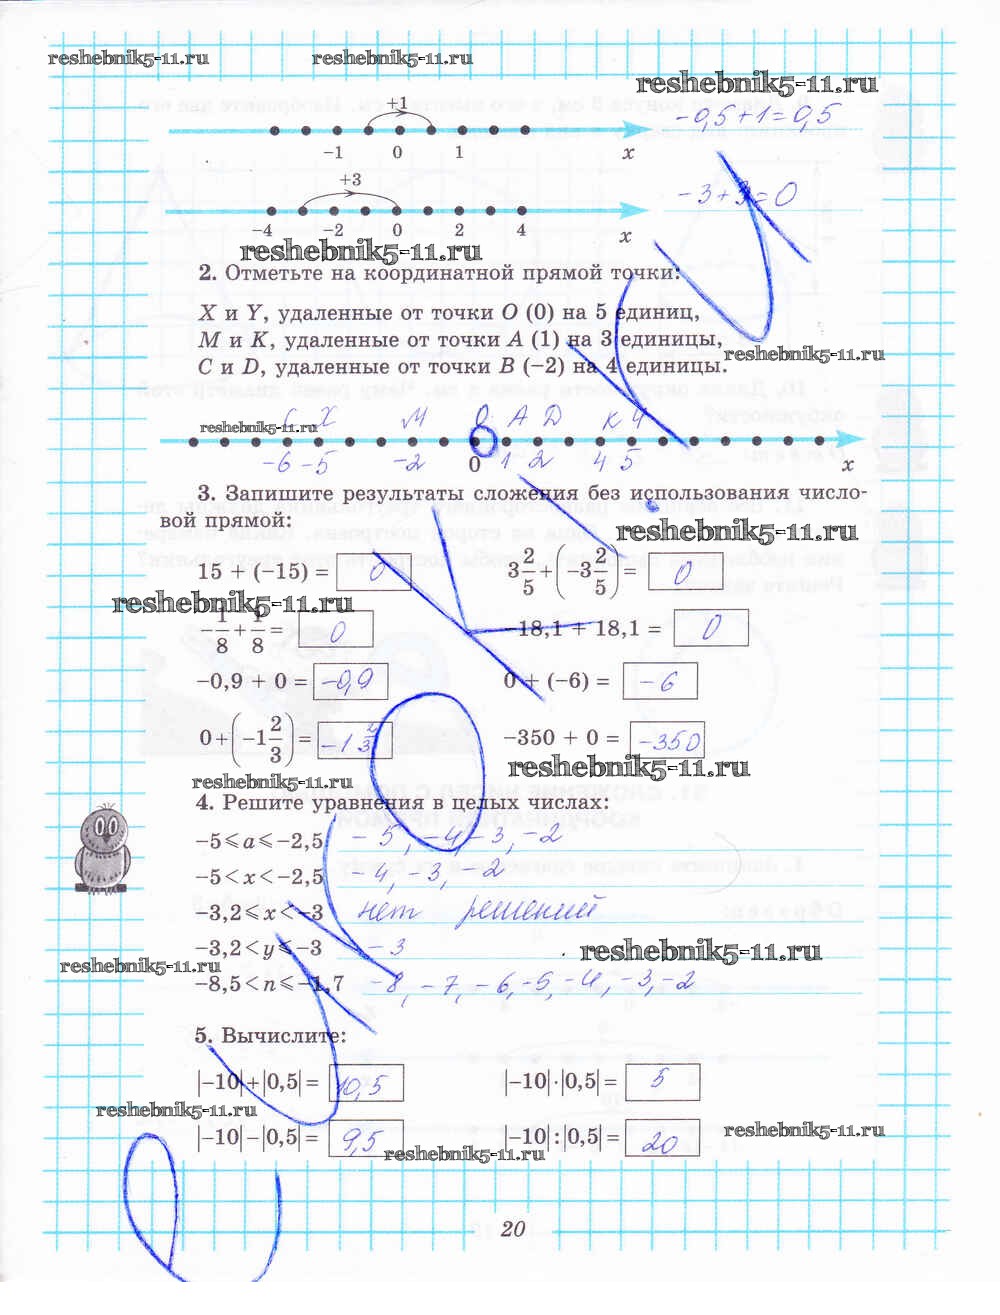 reshebnik5-11.ru reshebnik5-11.ru
reshebnik5-11.ru
+1
−0,5+1=0,5
−1 0 1 x
+3
−3+3=0
−4 −2 0 2 4 x
reshebnik5-11.ru
2. Отметьте на координатной прямой точки:
X и Y, удаленные от точки O (0) на 5 единиц,
M и K, удаленные от точки A (1) на 3 единицы,
reshebnik5-11.ru
C и D, удаленные от точки B (−2) на 4 единицы.
C X M O A D K Y
reshebnik5-11.ru
−6 −5 −2 0 1 2 4 5 x
3. Запишите результаты сложения без использования число-
вой прямой:
reshebnik5-11.ru
15 + (−15) = 0 3 2/5 + (−3 2/5) = 0
reshebnik5-11.ru
−1/8 + 1/8 = 0 −18,1 + 18,1 = 0
−0,9 + 0 = −0,9 0 + (−6) = −6
0 + (−1 2/3) = −1 2/3 −350 + 0 = −350
reshebnik5-11.ru reshebnik5-11.ru
4. Решите уравнения в целых числах:
−5⩽a⩽−2,5 −5, −4, −3, −2
−5<x<−2,5 −4, −3, −2
−3,2⩽x<−3 нет решений
−3,2<y⩽−3 −3
reshebnik5-11.ru reshebnik5-11.ru
−8,5<n⩽−1,7 −8, −7, −6, −5, −4, −3, −2
5. Вычислите:
|−10|+|0,5| = 10,5 |−10|·|0,5| = 5
reshebnik5-11.ru
|−10|−|0,5| = 9,5 |−10|:|0,5| = 20
reshebnik5-11.ru reshebnik5-11.ru
20